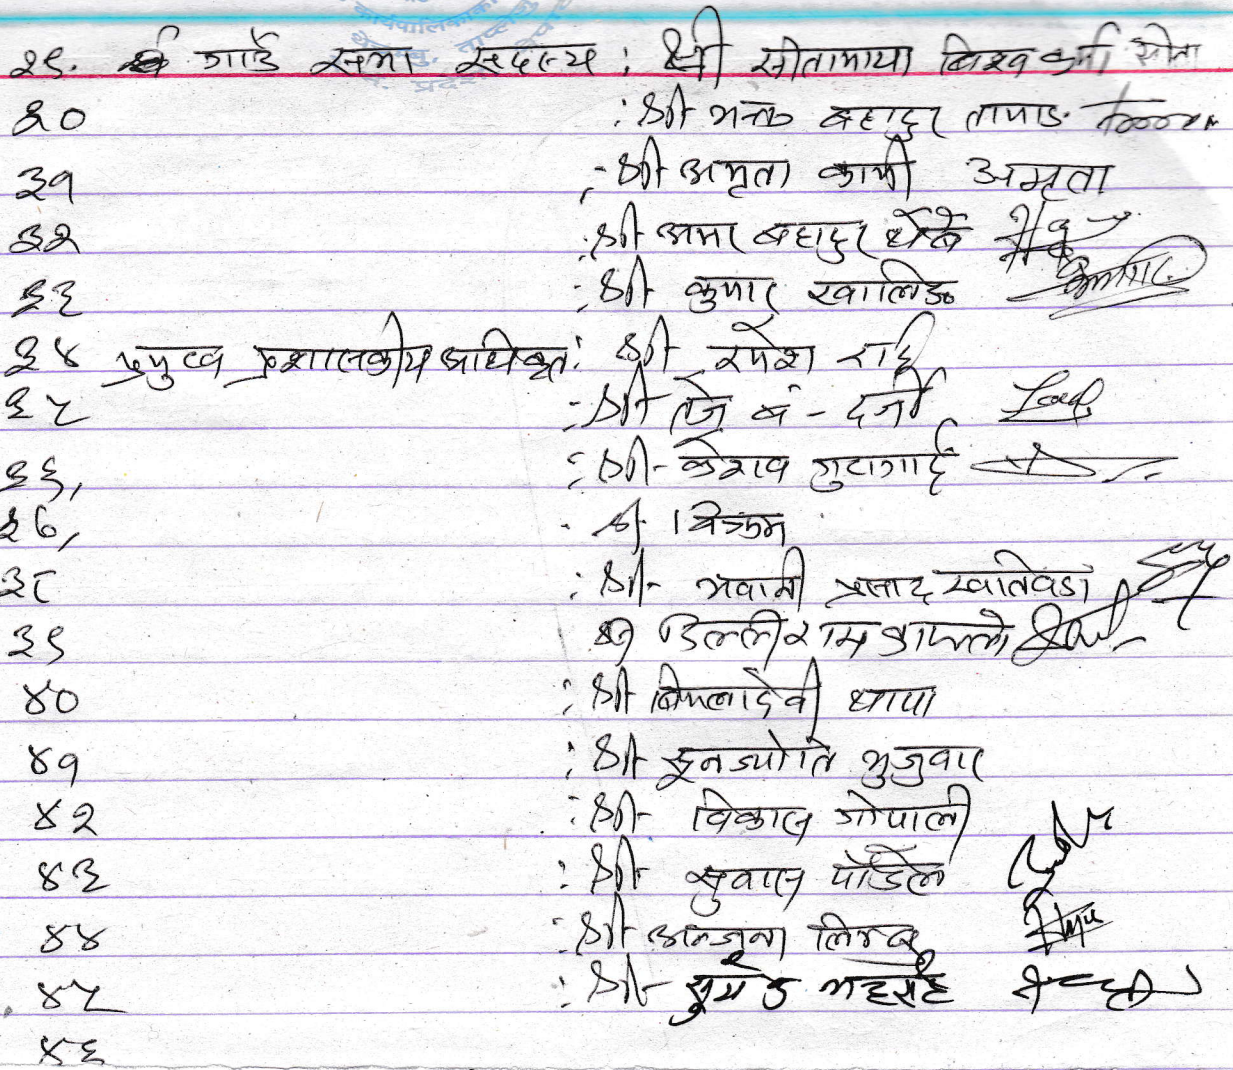 कार्यपालिकाको
२९. गाउँ सभा सदस्य : श्री सीतामाया विश्वकर्मा सीता
३० : श्री भक्त बहादुर तामाङ
३१ : श्री अमृता कामी अमृता
३२ : श्री अमर बहादुर थेबे
३३ : श्री कुमार खालिङ
३४ प्रमुख प्रशासकीय अधिकृत : श्री रमेश राई
३५ : श्री तेज बं - दर्जी
३६, : श्री - केशव गुरागाई
३७, . श्री बिक्रम
३८ : श्री - भवानी प्रसाद खतिवडा
३९ श्री डिल्लीराम काफ्ले
४० : श्री बिमलादेवी थापा
४१ : श्री इनज्योति भुजुवार
४२ : श्री - विकास गोपाली
४३ : श्री - सुवास पौडेल
४४ : श्री अन्जना लिम्बू
४५ : श्री -
४६